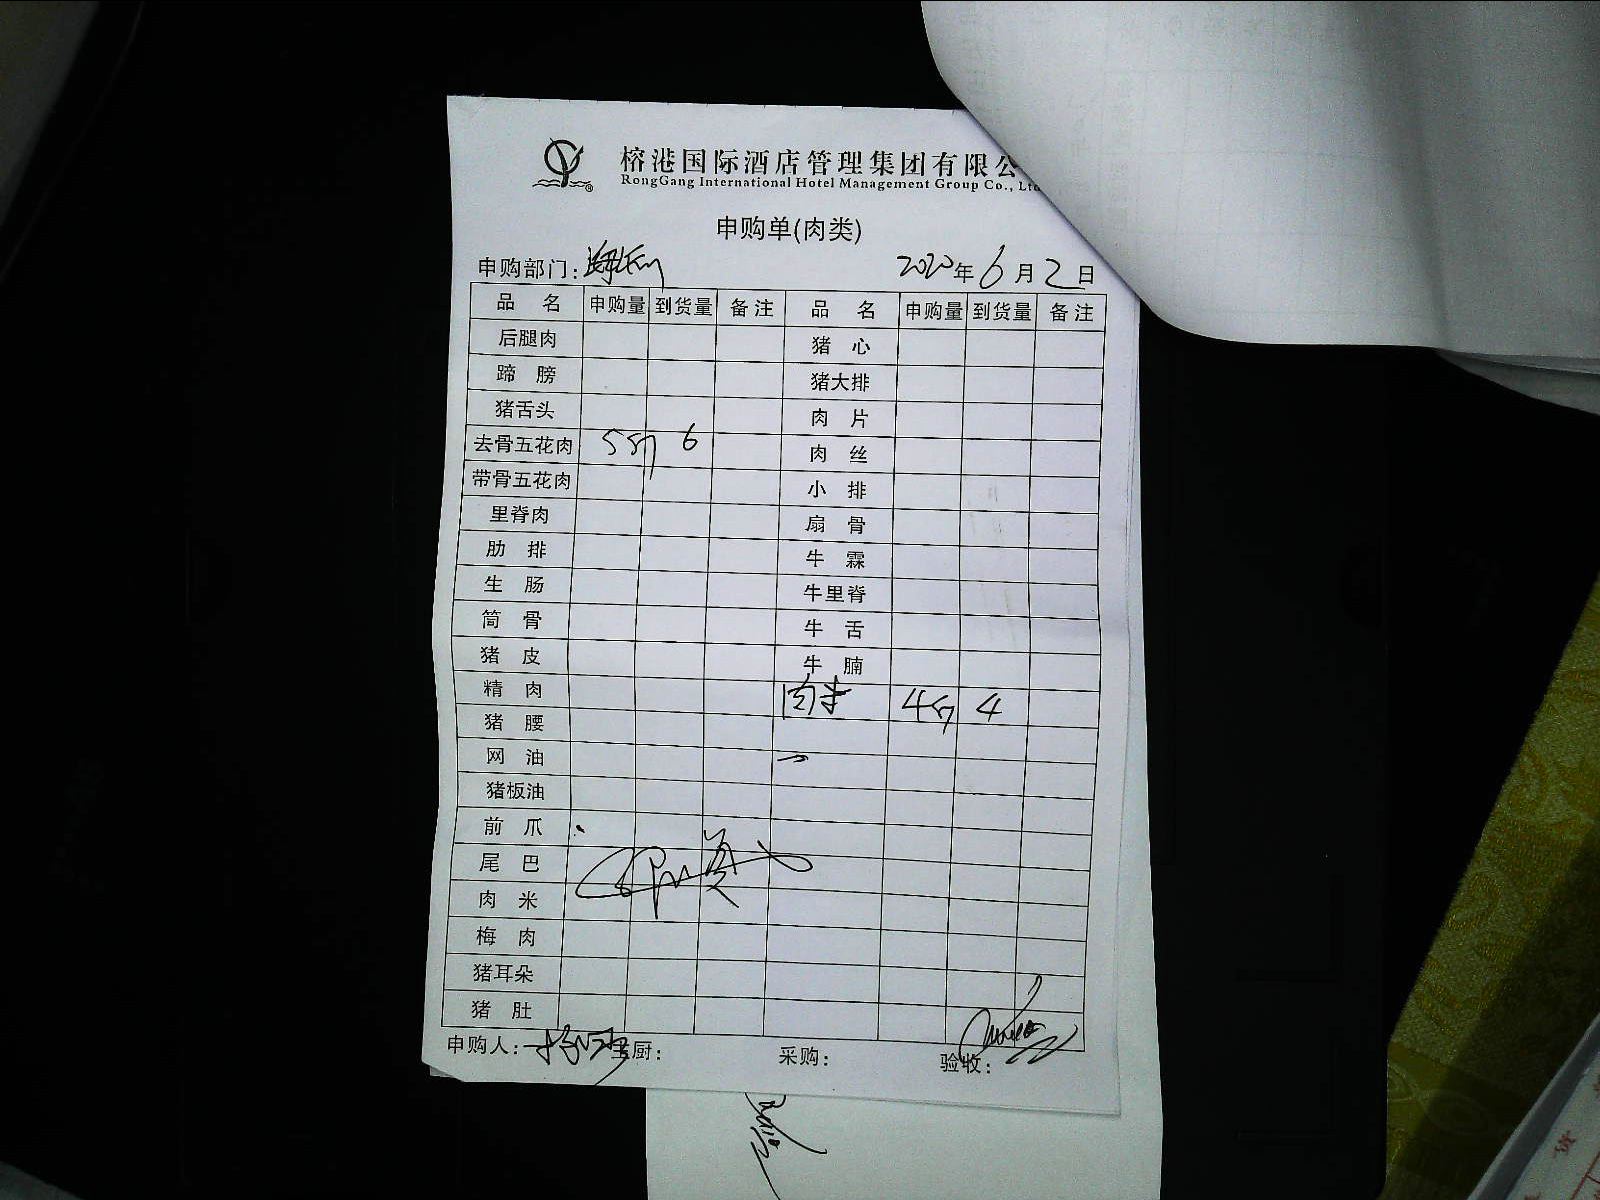 榕港国际酒店管理集团有限公
RongGang International Hotel Management Group Co., Ltd
申购单(肉类)
申购部门: 2020年6月2日
品 名 申购量 到货量 备注 品 名 申购量 到货量 备注
后腿肉 猪 心
蹄 膀 猪大排
猪舌头 肉 片
去骨五花肉 5斤 6 肉 丝
带骨五花肉 小 排
里脊肉 扇 骨
肋 排 牛 霖
生 肠 牛里脊
筒 骨 牛 舌
猪 皮 牛 腩
精 肉 肉 4斤 4
猪 腰
网 油
猪板油
前 爪
尾 巴
肉 米
梅 肉
猪耳朵
猪 肚
申购人: 主厨: 采购: 验收: